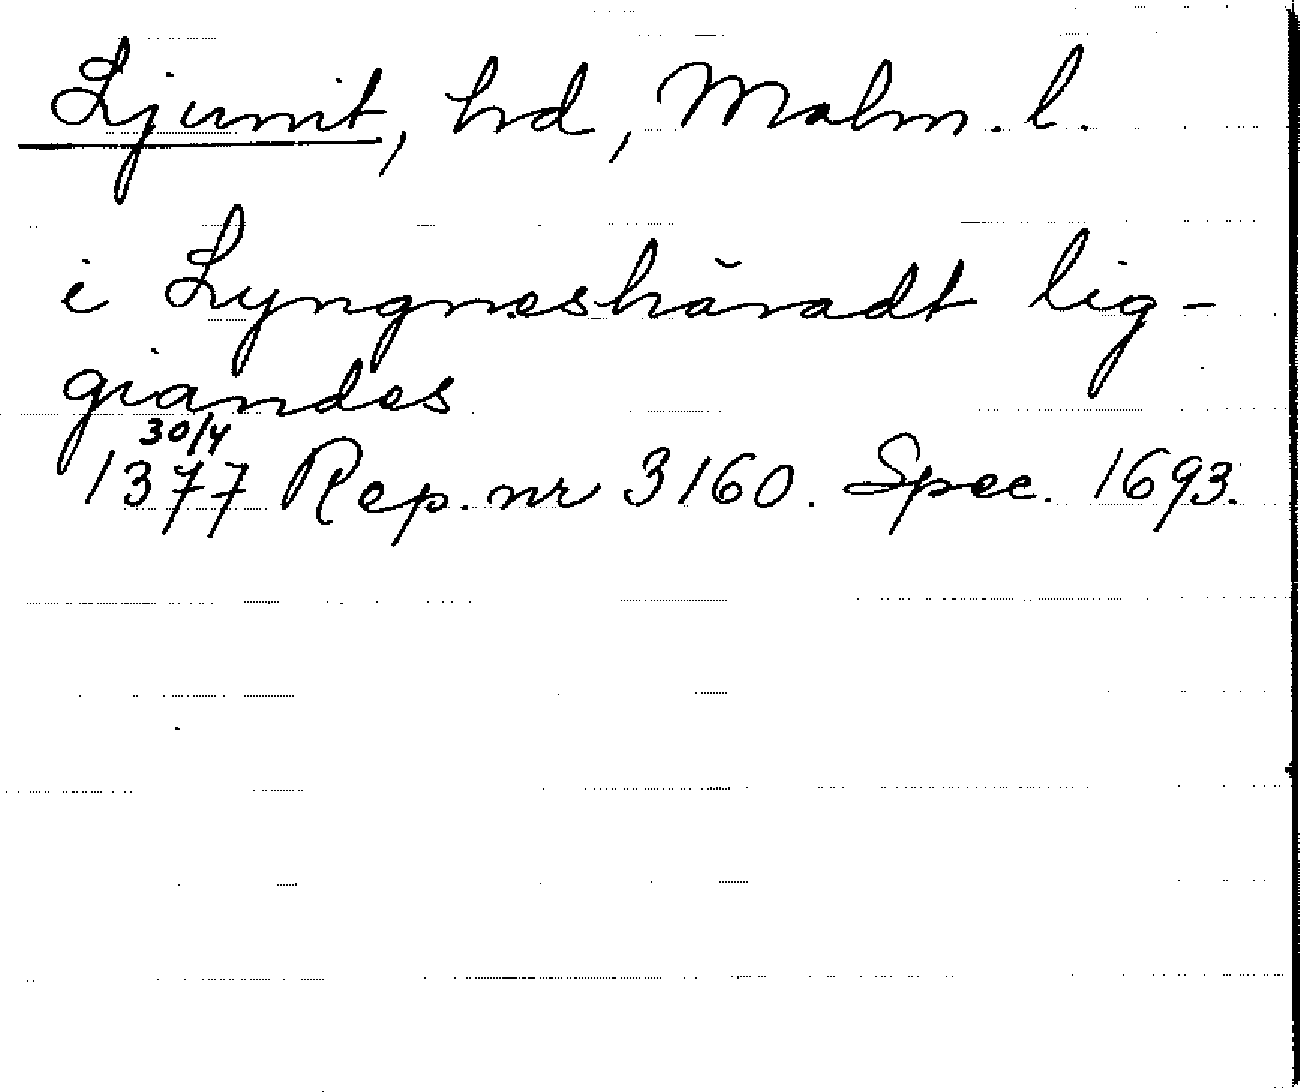 Ljunit, hd, Malm. l.
i Lyngneshăradt lig-
giandes
30/4
1377 Rep. nr 3160. Spec. 1693.